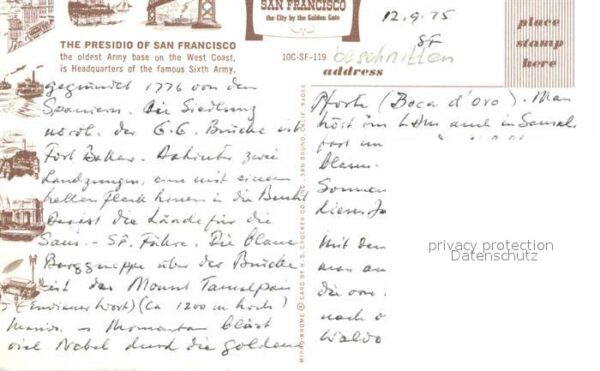 SAN FRANCISCO
the City by the Golden Gate
12.9.75
SF
beschnitten
place
stamp
here
THE PRESIDIO OF SAN FRANCISCO
the oldest Army base on the West Coast,
is Headquarters of the famous Sixth Army.
10C-SF-119
address
gegründet 1776 von den
Spaniern. Die Siedlung
nördl. der G.G. Brücke ist
Fort Baker. Dahinter zwei
Landzungen, eine mit einem
hellen Fleck hinein in die Bucht
Das ist die Lände für die
Saus.-SF. Fähre. Die blaue
Berggruppe über der Brücke
ist das Mount Tamalpais
(Indianer Wort) (ca 1200 m hoch)
Marin. Momentan bläst
viel Nebel durch die goldene
MIRRO-KROME ® CARD BY H. S. CROCKER CO., INC., SAN BRUNO, CALIF. 94066
Pforte (Boca d'oro). Man
hört im auch in Sausal
fort
blasen.
Sommer
diesem Ja
Mit dem
man au
die von
nach
Waldo
privacy protection
Datenschutz